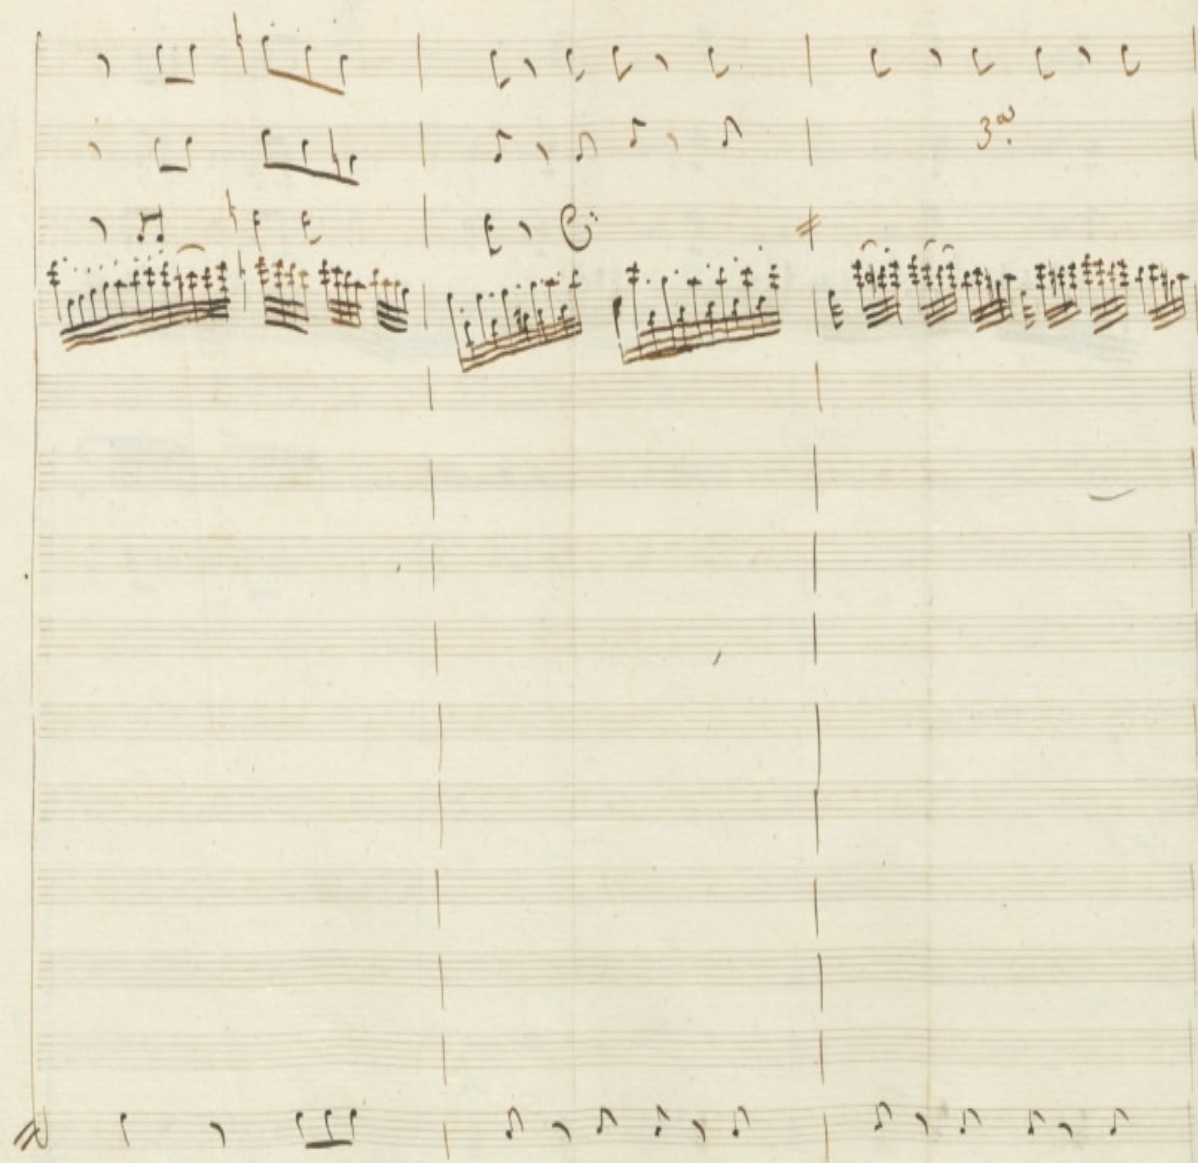 3ª.